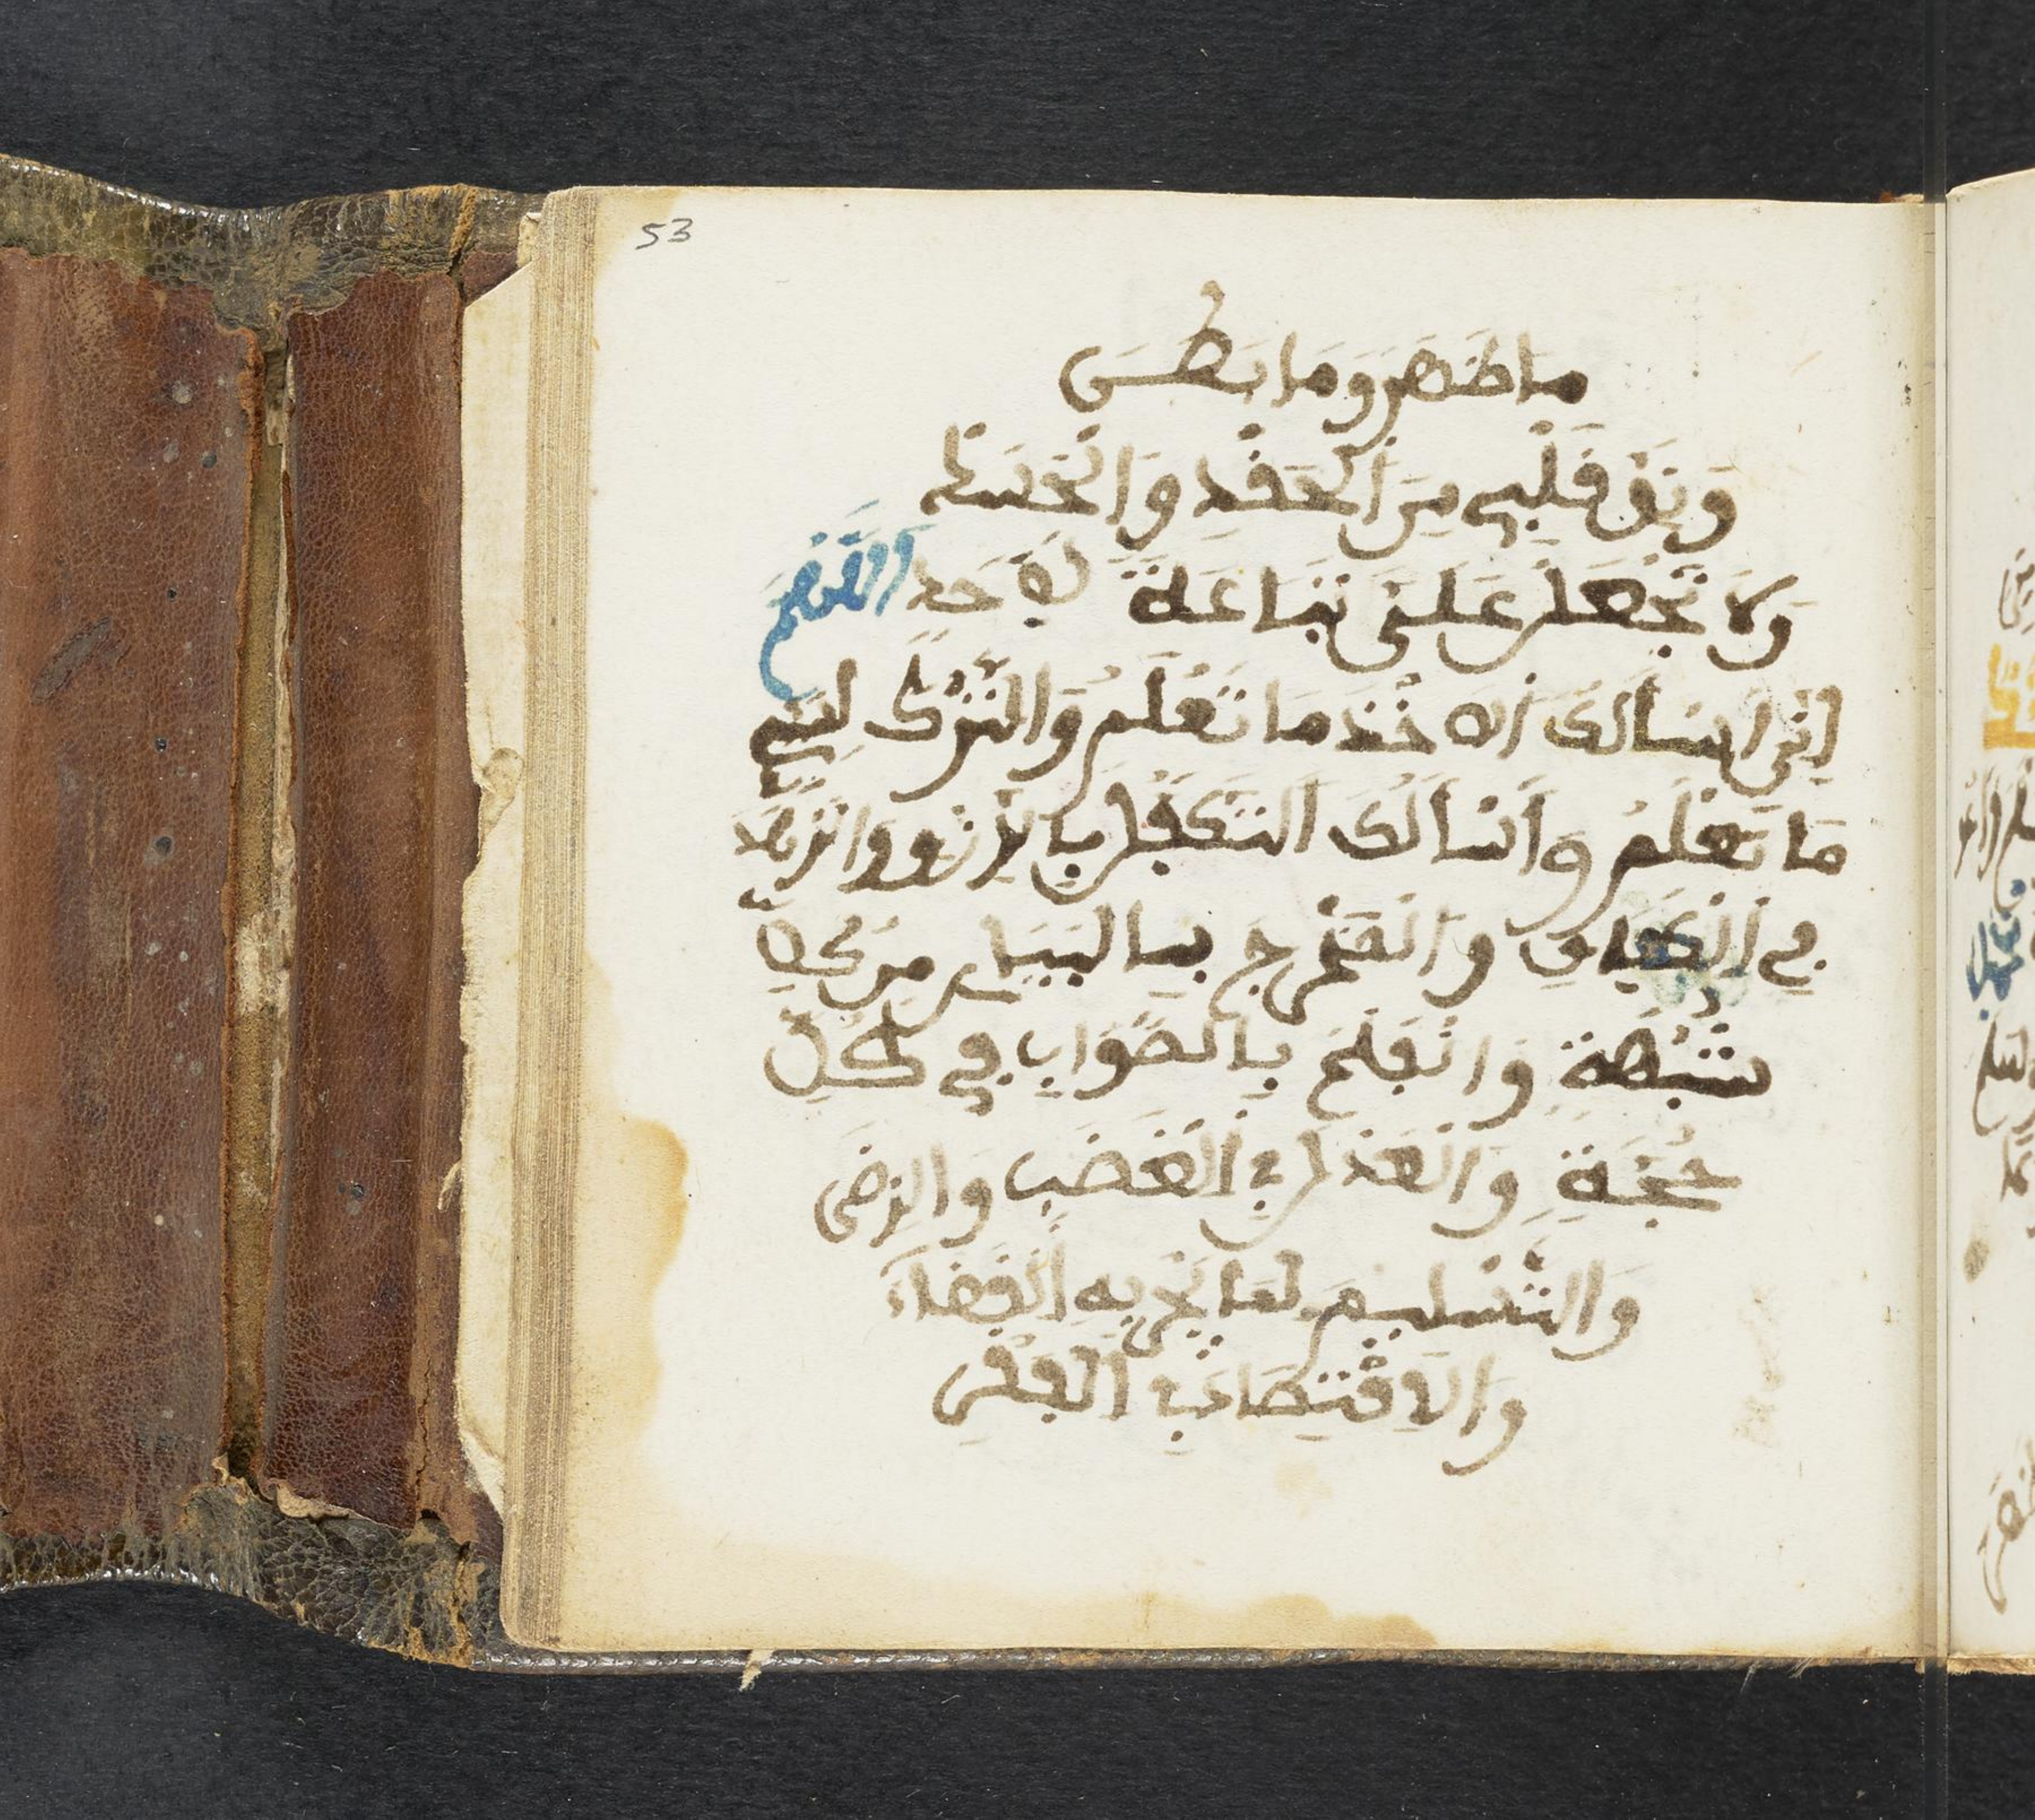 53
ما ظهر وما بطن
ونق قلبي من الحقد والحسد
ولا تجعل علي تباعة لأحد اللهم
إني أسألك الأخذ ما تعلم والترك لسيء
ما تعلم وأسألك التكفل بالرزق والزهد
في الكفاف والمخرج بالبيان من كل
شبهة والفلج بالصواب في كل
حجة والعدل في الغضب والرضى
والتسليم لما يجري به القضاء
والاقتصاد في الفقر